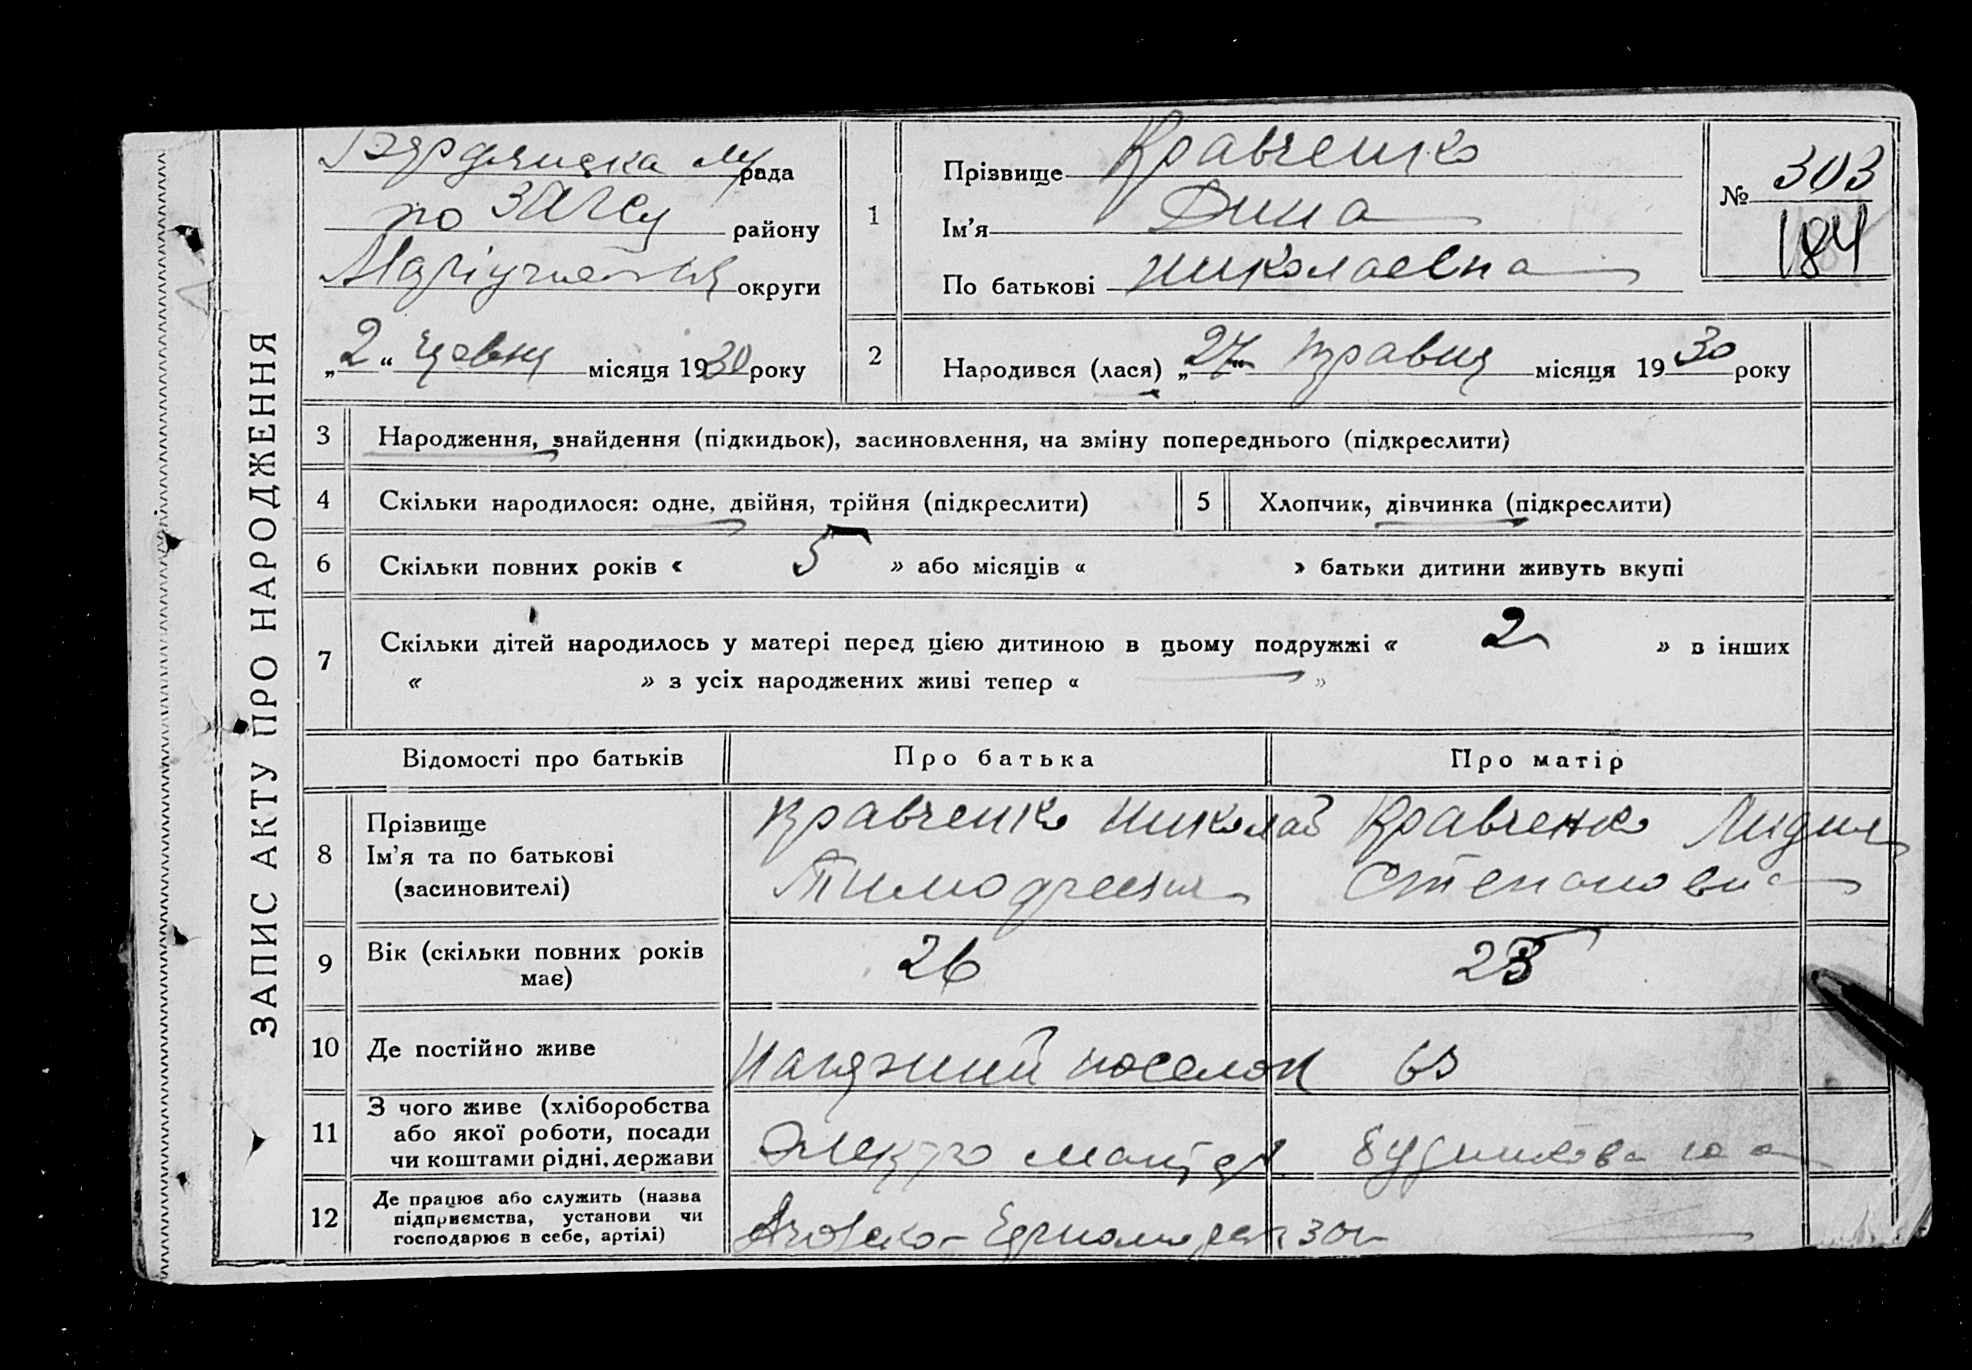 ЗАПИС АКТУ ПРО НАРОДЖЕННЯ
Бердянська рада
по ЗАГСу району
округи
„2“ червня місяця 1930 року
1
Прізвище Кравченко
Ім'я Дина
По батькові Николаевна
№ 303
184
2
Народився (лася) „27“ травня місяця 1930 року
3 Народження, знайдення (підкидьок), засиновлення, на зміну попереднього (підкреслити)
4 Скільки народилося: одне, двійня, трійня (підкреслити) 5 Хлопчик, дівчинка (підкреслити)
6 Скільки повних років « 5 » або місяців « » батьки дитини живуть вкупі
7 Скільки дітей народилось у матері перед цією дитиною в цьому подружжі « 2 » в інших
« » з усіх народжених живі тепер « — »
Відомості про батьків Про батька Про матір
8 Прізвище
Ім'я та по батькові
(засиновителі)
Кравченко Николай
Тимофеевич
Кравченко Лидия
Степановна
9 Вік (скільки повних років
має)
26
10 Де постійно живе поселок 63
11 З чого живе (хліборобства
або якої роботи, посади
чи коштами рідні, держави
Электро
12 Де працює або служить (назва
підприємства, установи чи
господарює в себе, артілі)